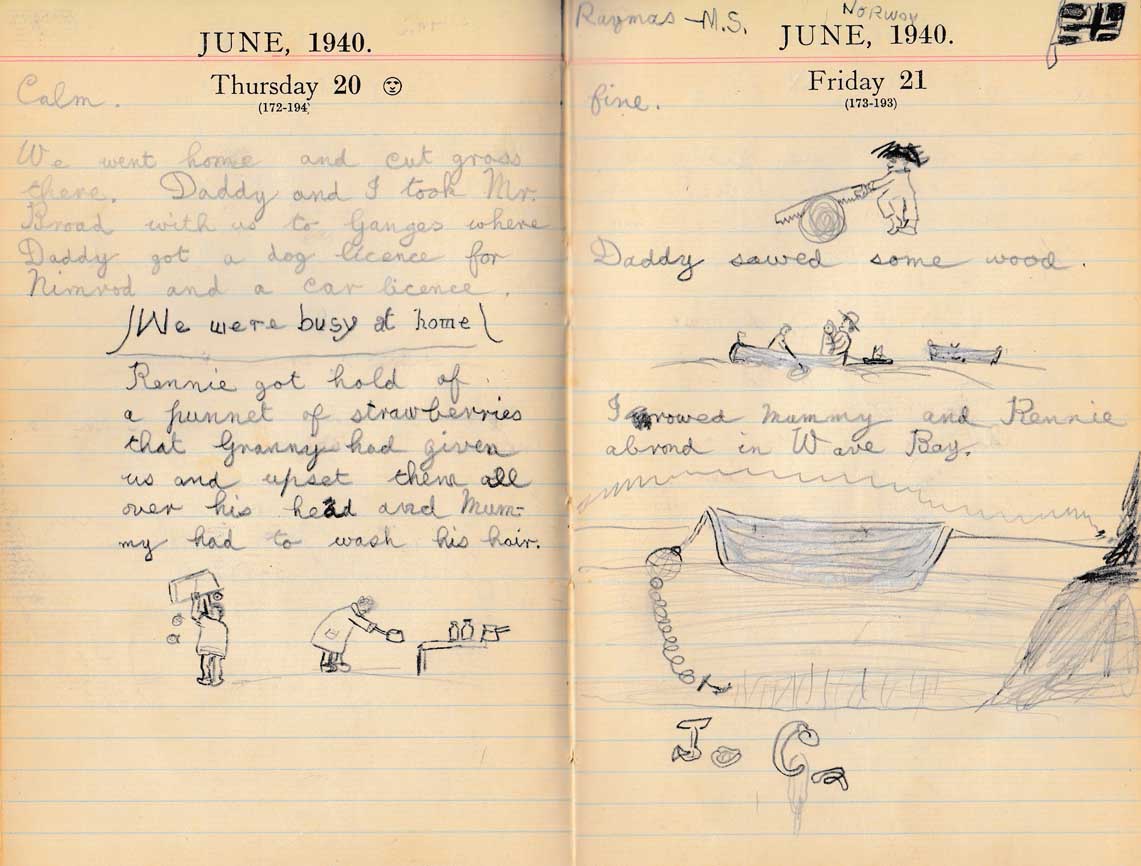 JUNE, 1940.
Thursday 20
(172-194)
Calm.
We went home and cut grass
there. Daddy and I took Mr.
Broad with us to Ganges where
Daddy got a dog licence for
Nimrod and a car licence.
We were busy at home
Rennie got hold of
a punnet of strawberries
that Granny had given
us and upset them all
over his head and Mum-
my had to wash his hair.
Raymas - M.S.
NORWAY
JUNE, 1940.
Friday 21
(173-193)
fine.
Daddy sawed some wood.
I rowed Mummy and Rennie
abrond in Wave Bay.
J. C.